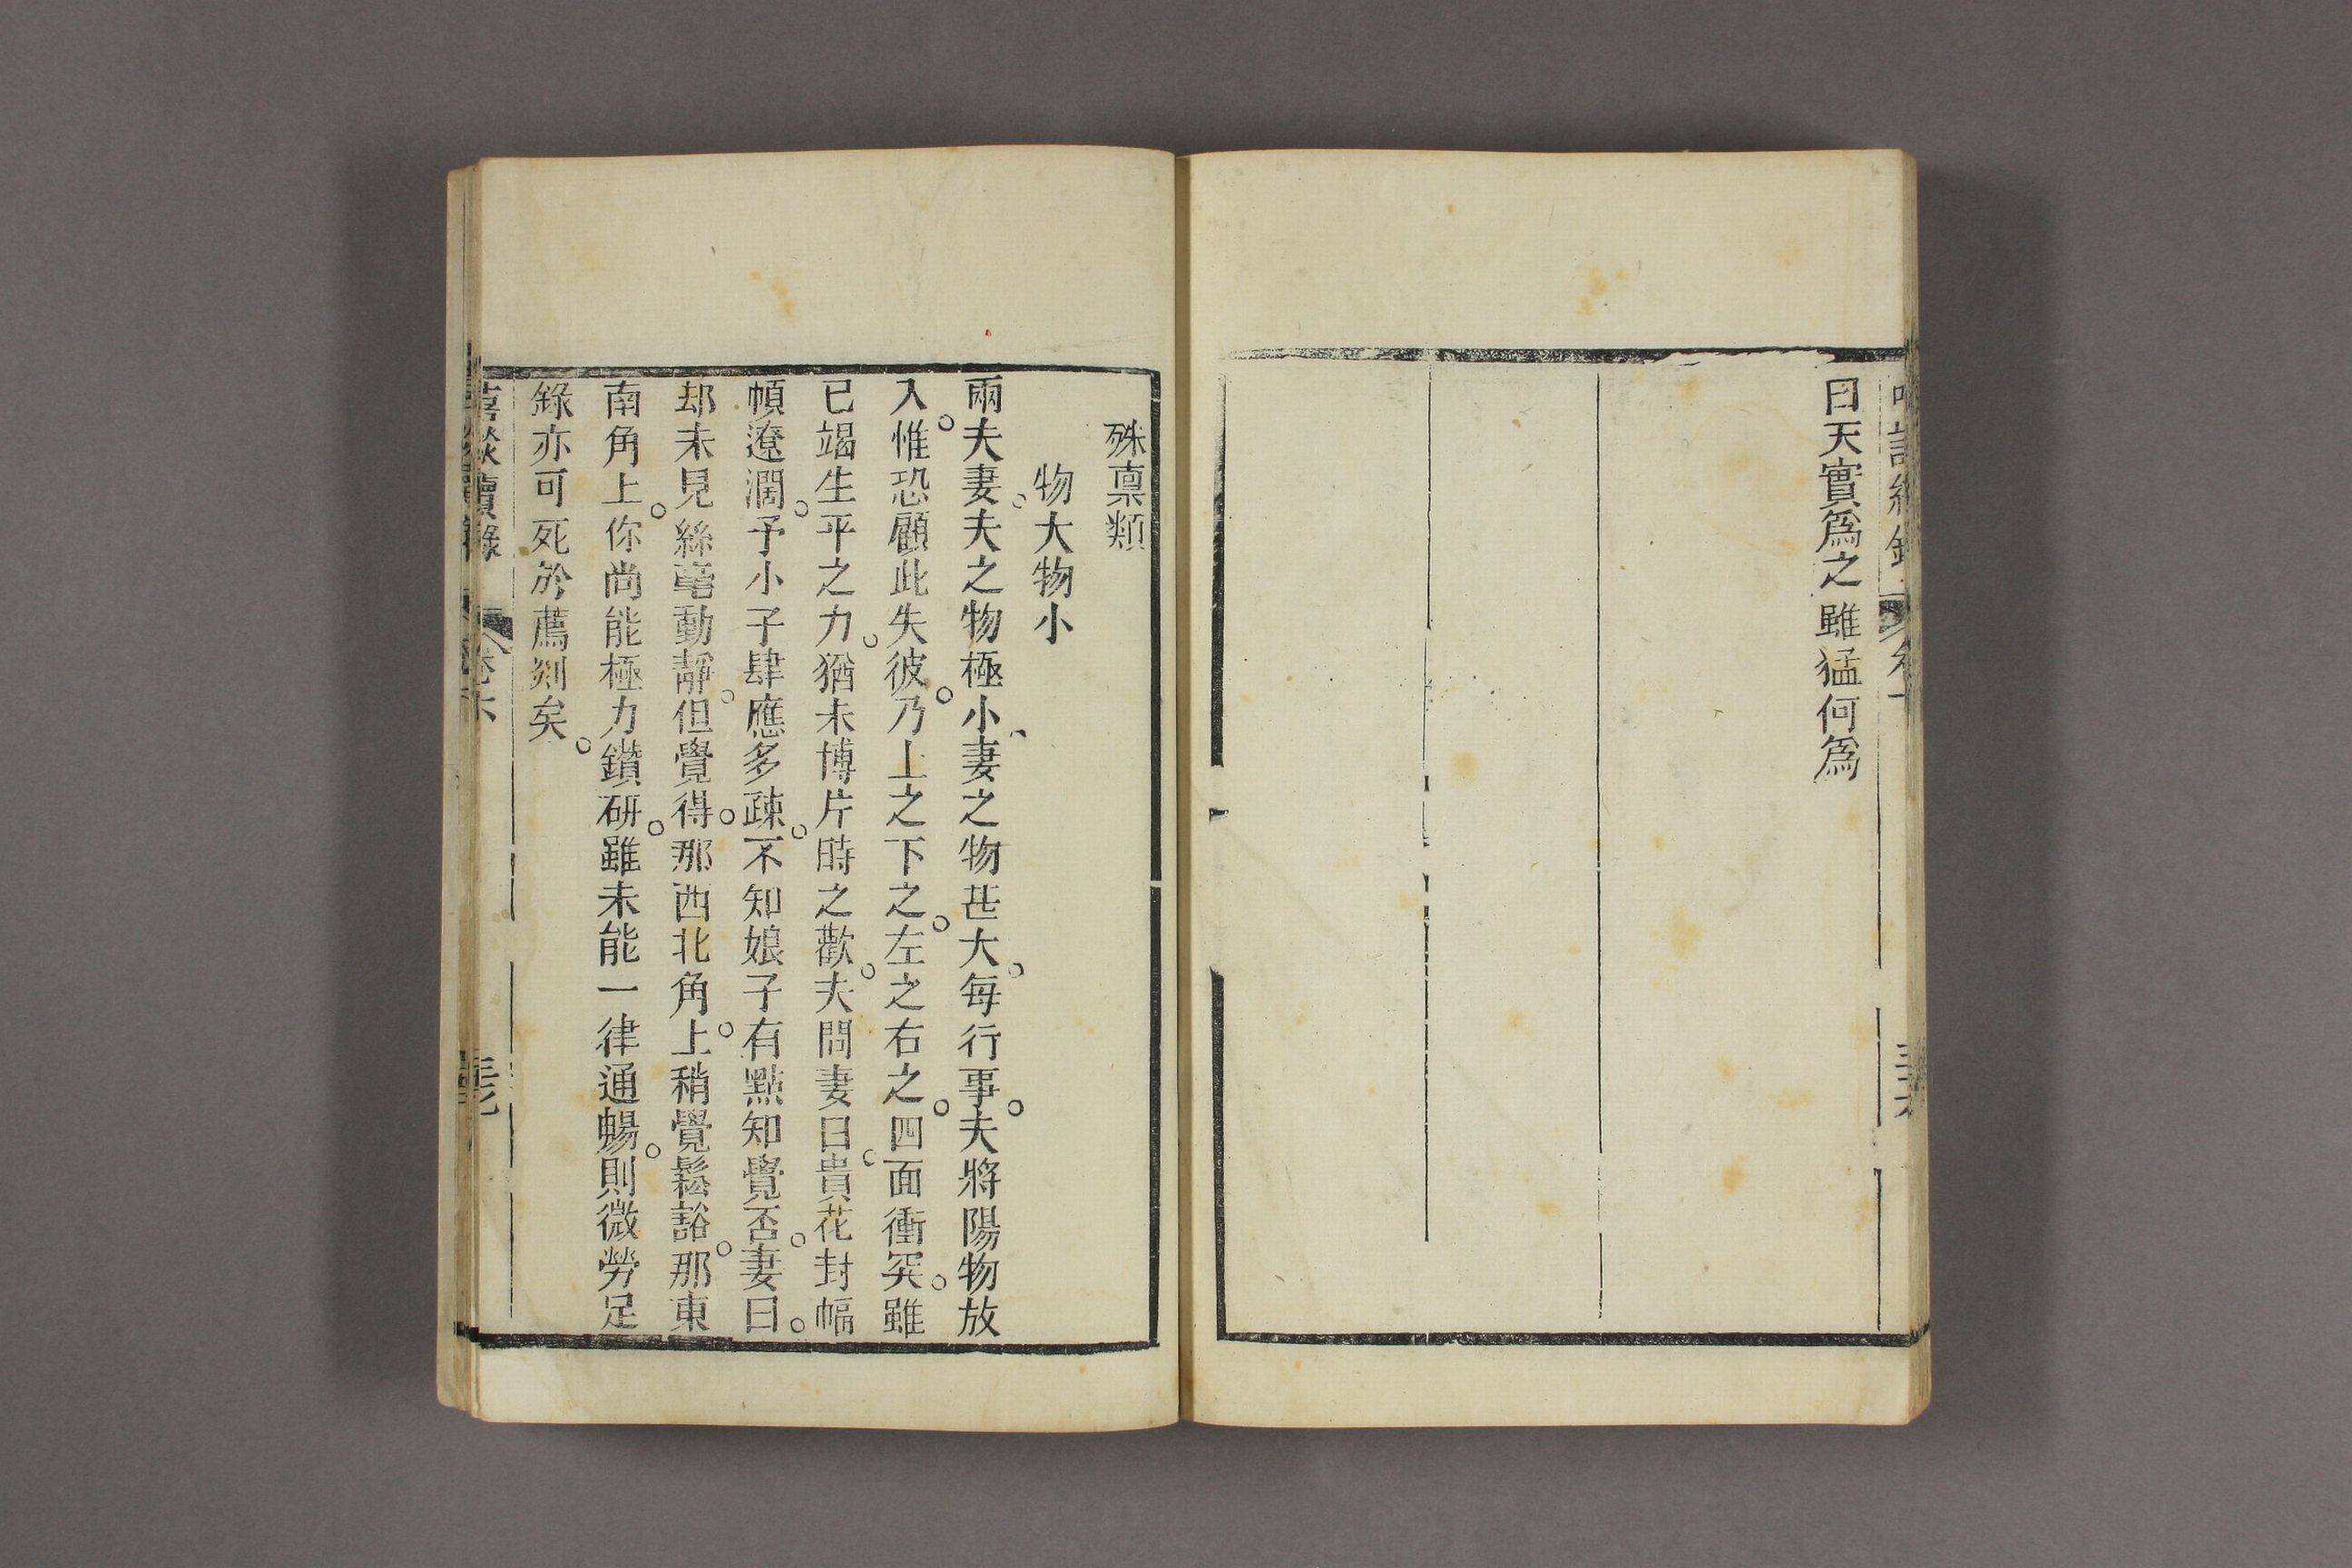 曰天實爲之雖猛何爲
殊禀類
物大物小
兩夫妻夫之物極小妻之物甚大每行事夫將陽物放
入惟恐顧此失彼乃上之下之左之右之四面衝突雖
已竭生平之力猶未博片時之歡夫問妻曰貴花封幅
幀遼濶予小子肆應多疎不知娘子有點知覺否妻曰
却未見絲毫動靜但覺得那西北角上稍覺鬆豁那東
南角上你尚能極力鑽研雖未能一律通暢則微勞足
錄亦可死於薦剡矣